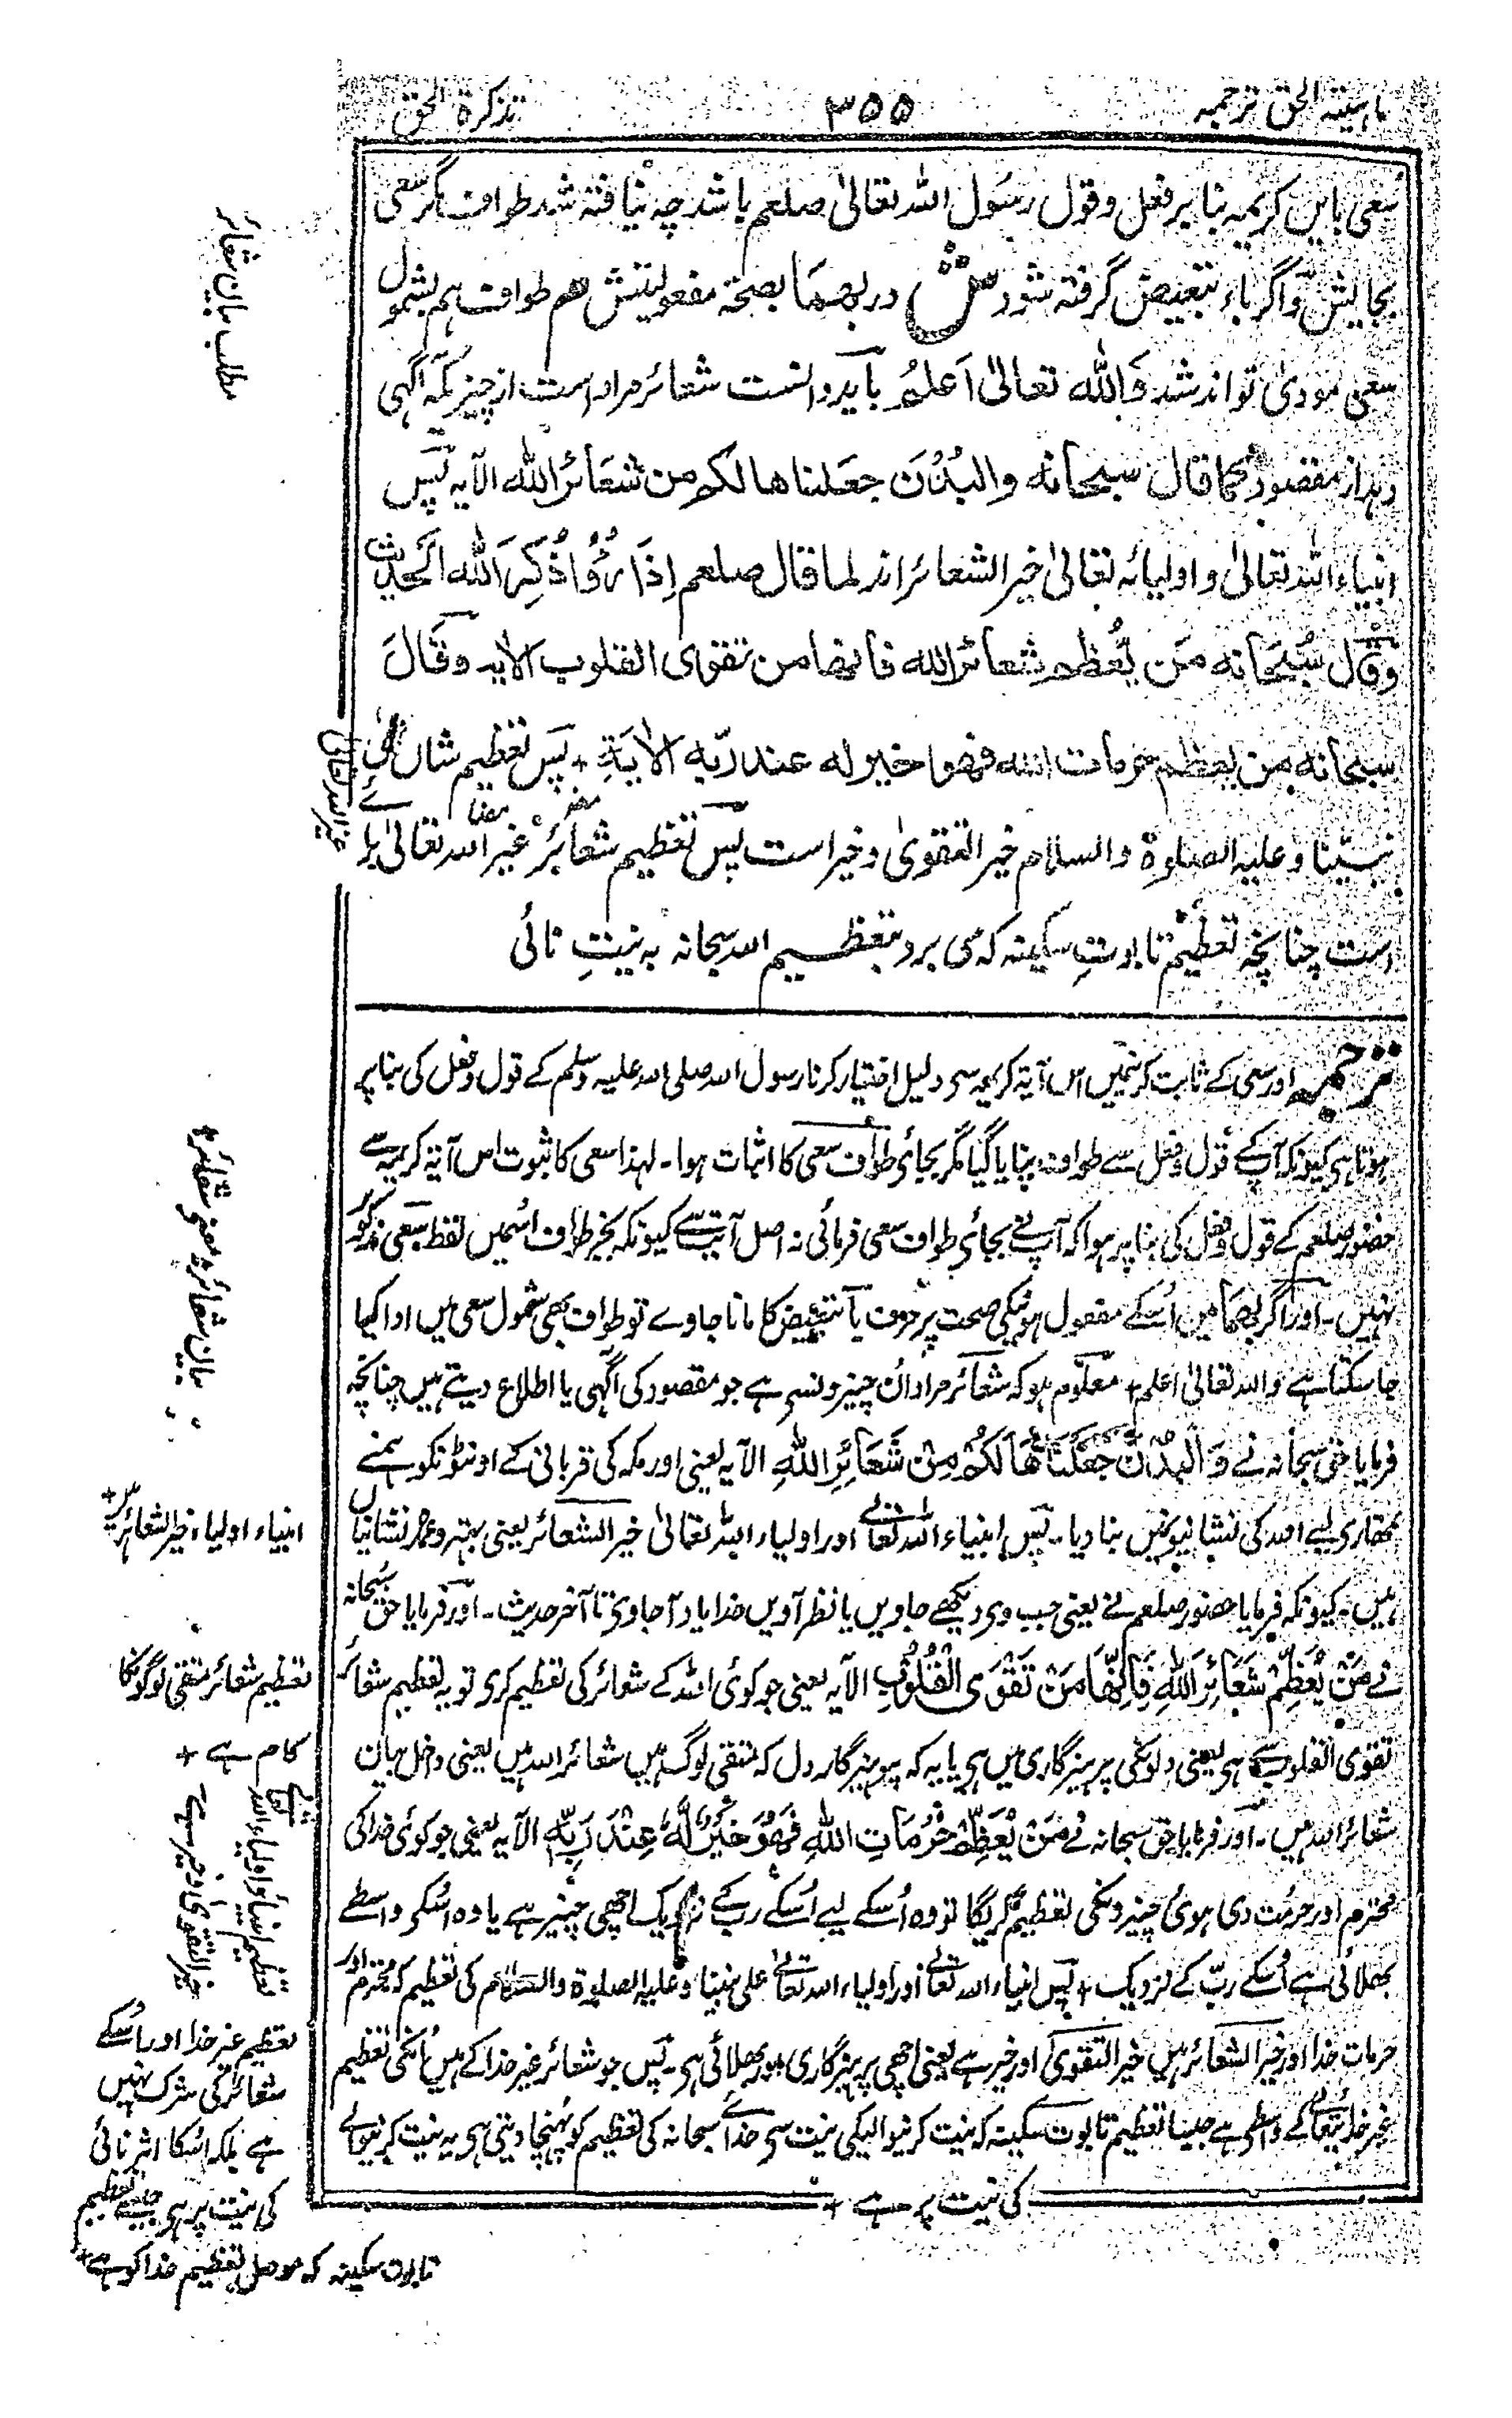 ماہیتہ الحق ترجمہ
۳۵۵
تذکرۃ الحق
سعی باین کریمہ بنا بر فعل و قول رسول اللہ تعالیٰ صلعم باشد چہ نیافتہ شد طواف مگر سعی
بجایش و اگر باء تبعیض گرفتہ شود در بھما بصحۃ مفعولیتش ھم طواف ہم بشمول
سعی مودیٰ تواند شد وَاللّٰہ تعالیٰ اَعلمُ باید دانست شعائر مراد است از چیزیکہ آگہی
دہد از مقصود کما قال سبحانہ والبُدْنَ جعَلناھا لکم من شعَائر اللّٰہ الآیہ پس
انبیاء اللہ تعالیٰ و اولیائہ تعالیٰ خیر الشعائر اند لما قال صلعم اِذَا رُؤُا ذُکِرَ اللّٰہ الحدیث
وقال سُبحَانہ مَن یُّعظم شعائر اللّٰہ فانھا من تقوی القلوب الایہ وقَالَ
سبحانہ من یعظم حرمات اللہ فھوا خیر لہ عند ربّہ الاٰیَۃِ + پس تعظیم شاں علیٰ
نبیّنا و علیہ الصلوۃ والسلام خیر التقویٰ و خیر است پس تعظیم شعائر غیر اللہ تعالیٰ برا
ے غیر اللہ تعالیٰ
است چنانچہ تعظیم تابوتِ سکینہ کہ می برد بتعظیم اللہ سبحانہ بہ نیتِ نائی
ترجمہ اور سعی کے ثابت کرنیمیں اس آیۃ کریمہ سی دلیل اختیار کرنا رسول اللہ صلی اللہ علیہ وسلم کے قول و فعل کی بنا پر
ہوتا ہی کیونکہ آپکے قول و فعل سے طواف نپایا گیا مگر بجائی طواف سعی کا اثبات ہوا۔ لہذا سعی کا ثبوت اس آیۃ کریمہ سے
حضور صلعم کے قول و فعل کی بنا پر ہوا کہ آپ نے بجائ طواف سعی فرمائی نہ اصل آیت سے کیونکہ بجز طواف اسمیں لفظ سعی مذکور
نہیں۔ اور اگر بھما میں اُسکے مفعول ہونیکی صحت پر حرف با تبعیض کا مانا جاوے تو طواف بھی شمول سعی میں ادا کیا
جا سکتا ہے واللہ تعالیٰ اعلم + معلوم ہو کہ شعائر مراد ان چیزونسی ہے جو مقصود کی آگہی یا اطلاع دیتے ہیں چنانچہ
فرمایا حق سبحانہ نے وَالْبُدْنَ جَعَلْنَاھَا لَکُمْ مِنْ شَعَائِرِ اللّٰہِ الآیہ یعنی اور مکہ کی قربانی کے اونٹونکو ہمنے
تمھاری لیے اللہ کی نشانیونمیں بنا دیا۔ پس انبیاء اللہ تعالے اور اولیاء اللہ تعالیٰ خیر الشعائر یعنی بہتر و عمدہ نشانیاں
ہیں۔ کیونکہ فرمایا حضور صلعم نے یعنی جب وی دیکھے جاویں یا نظر آویں خدا یاد آ جاوی تا آخر حدیث۔ اور فرمایا حق سبحانہ
نے مَنْ یُّعَظِّمْ شَعَائِرَ اللّٰہِ فَاِنَّھَا مِنْ تَقْوَی الْقُلُوْبِ الآیہ یعنی جو کوئی اللہ کے شعائر کی تعظیم کری تو یہ تعظیم شعائر
تقوی القلوب سے ہی یعنی دلونکی پرہیزگاری میں ہی یا یہ کہ پرہیزگار دل کہ متقی لوگ ہیں شعائر اللہ ہیں یعنی داخل بیان
شعائر اللہ ہیں۔ اور فرمایا حق سبحانہ نے مَنْ یُعَظِّمْ حُرُمَاتِ اللّٰہِ فَھُوَ خَیْرٌ لَّہٗ عِنْدَ رَبِّہٖ الآیہ یعنی جو کوئی خدا کی
محترم اور حرمت دی ہوئی چیزونکی تعظیم کریگا تو وہ اُسکے لیے اُسکے رب کے نزدیک اچھی چیز ہے یا وہ اُسکی واسطے
بھلائی ہے اُسکے ربّ کے نزدیک + پس انبیاء اللہ تعالے اور اولیاء اللہ تعالے علی نبینا و علیہ الصلوۃ والسلام کی تعظیم کہ محترم اور
حرمات خدا اور خیر الشعائر ہیں خیر التقویٰ اور خیر ہے یعنی اچھی پرہیزگاری اور بھلائی ہی۔ پس جو شعائر غیر خدا کے ہیں اُنکی تعظیم
غیر خدا تعالےٰ کے واسطی ہے جیسا تعظیم تابوت سکینہ کہ نیت کرنیوالیکی نیت سی خدائے سبحانہ کی تعظیم کو پُہنچا دیتی ہی یہ نیت کرنیوالے
کی نیت پر ہے +
مطلب بیان شعائر
بیان شعائر و معنی شعائر +
انبیاء اولیاء خیر الشعائر ہیں +
تعظیم شعائر متقی لوگونکا
کام ہے +
تعظیم انبیا و اولیاء اللہ تعالے
خیر التقوی اور خیر ہے
تعظیم غیر خدا اور اُسکے
شعائر کی شرک نہیں
ہے بلکہ اُسکا اثر نائی
کی نیت پر ہی جیسے تعظیم
تابوت سکینہ کہ موصل تعظیم خدا کو ہے +